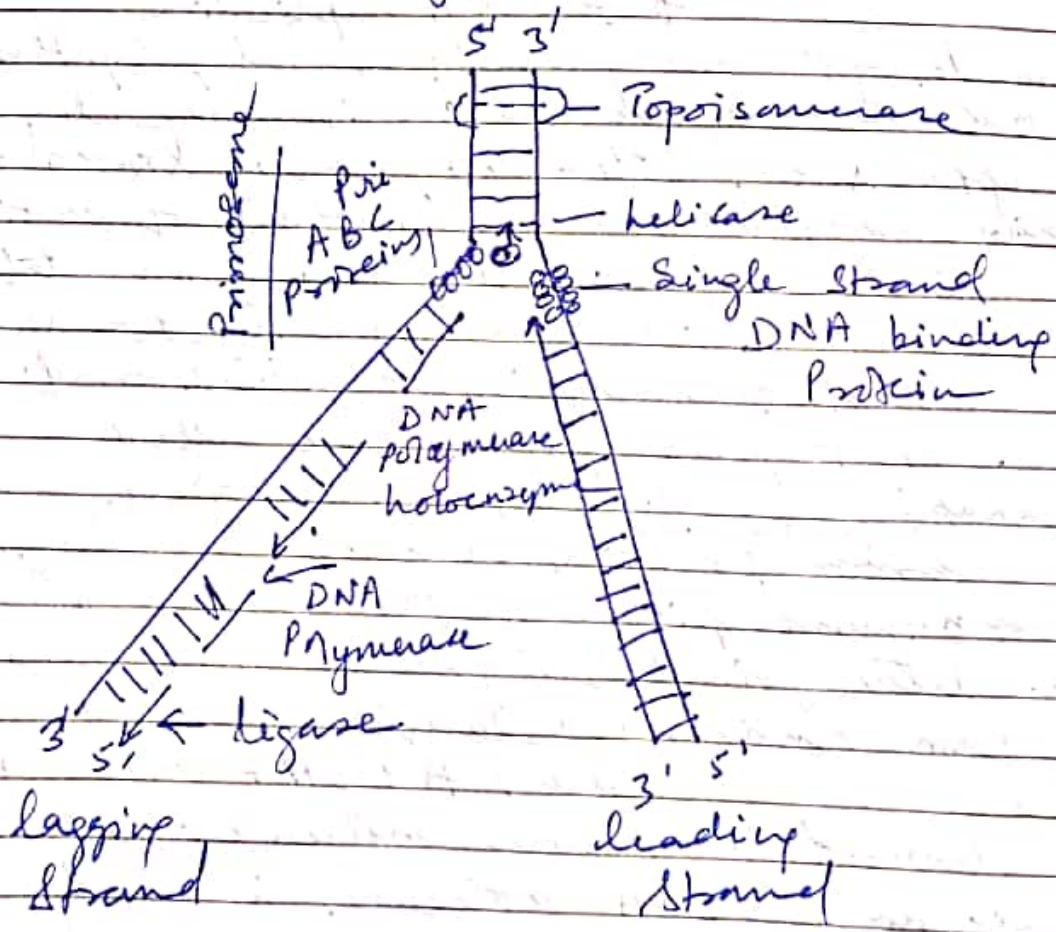 5' 3'
Topoisomerase
Primosome
Pri
A B C
Proteins
helicase
Single Strand
DNA binding
Protein
DNA
Polymerase
holoenzym
DNA
Polymerase
ligase
3'
5'
3' 5'
lagging
Strand
leading
Strand